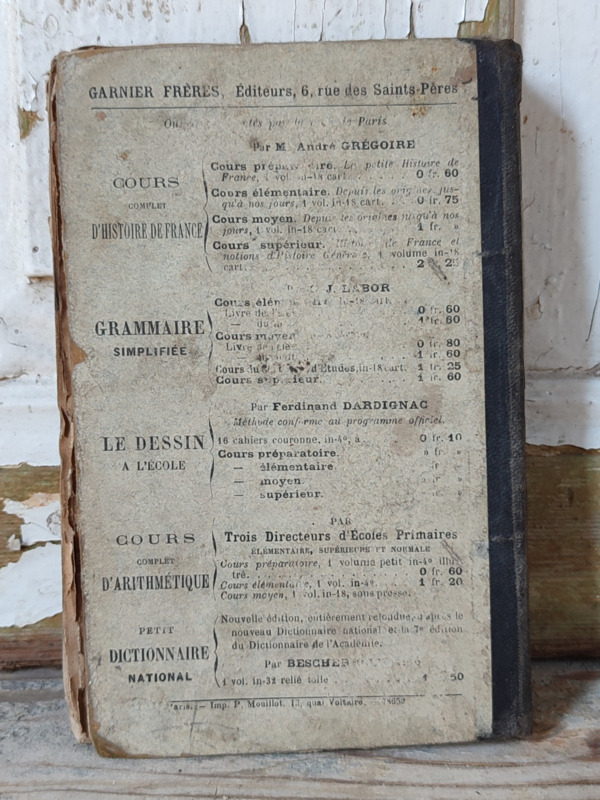 GARNIER FRÈRES, Éditeurs, 6, rue des Saints-Pères
Paris
Par M. André GRÉGOIRE
COURS
COMPLET
D'HISTOIRE DE FRANCE
Cours préparatoire. La petite Histoire de
France, 1 vol. in-18 cart. 0 fr. 60
Cours élémentaire. Depuis les origines jus-
qu'à nos jours, 1 vol. in-18 cart. 0 fr. 75
Cours moyen. Depuis les origines jusqu'à nos
jours, 1 vol. in-18 cart. 1 fr. »
Cours supérieur. Histoire de France et
notions d'Histoire Générale, 1 volume in-18
cart. 2 25
J. LABOR
GRAMMAIRE
SIMPLIFIÉE
Cours in-18 cart.
Livre de 0 fr. 60
— du 1 fr. 60
Cours moyen
Livre 0 fr. 80
1 fr. 60
Cours d'Études, in-18 cart. 1 fr. 25
Cours supérieur. 1 fr. 60
Par Ferdinand DARDIGNAC
Méthode conforme au programme officiel.
LE DESSIN
A L'ÉCOLE
16 cahiers couronne, in-4º, à 0 fr. 10
Cours préparatoire. » fr. »
— élémentaire.
— moyen.
— supérieur.
PAR
Trois Directeurs d'Écoles Primaires
ÉLÉMENTAIRE, SUPÉRIEURE ET NORMALE
COURS
COMPLET
D'ARITHMÉTIQUE
Cours préparatoire, 1 volume petit in-4º illus-
tré. 0 fr. 60
Cours élémentaire, 1 vol. in-4º. 1 fr. 20
Cours moyen, 1 vol. in-18, sous presse.
PETIT
DICTIONNAIRE
NATIONAL
Nouvelle édition, entièrement refondue, d'après le
nouveau Dictionnaire national et la 7e édition
du Dictionnaire de l'Académie.
Par
1 vol. in-32 relié toile 1 50
Paris. — Imp. P. Mouillot, 13, quai Voltaire.